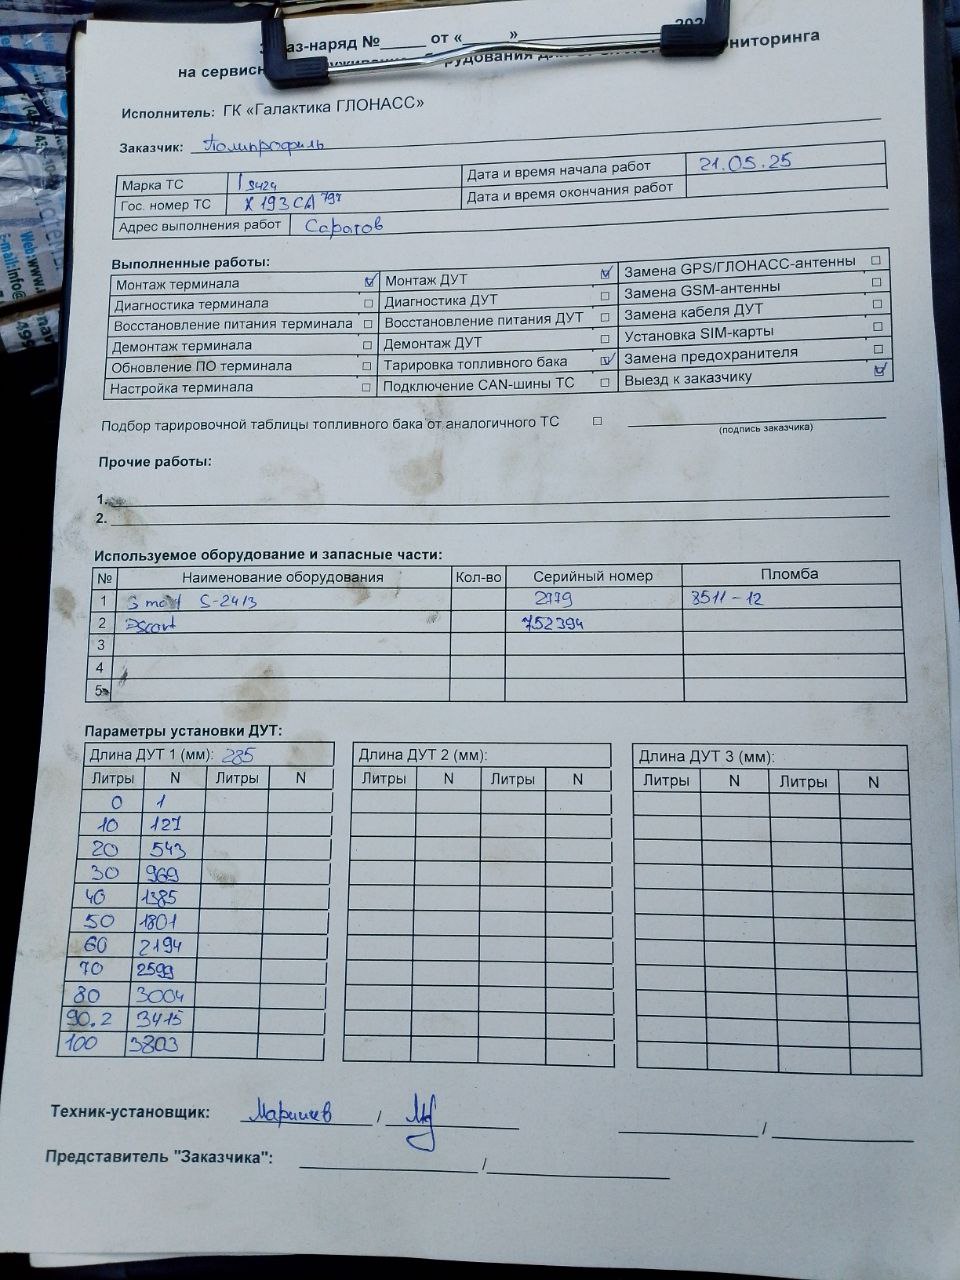 аз-наряд №_____ от «_____»____________ 202
на сервисн ниторинга
Исполнитель: ГК «Галактика ГЛОНАСС»
Заказчик: Полипрофиль
Марка ТС
Дата и время начала работ 21.05.25
Гос. номер ТС Х 193 СА 797
Дата и время окончания работ
Адрес выполнения работ Саратов
Выполненные работы:
Монтаж терминала ☑ Монтаж ДУТ ☑ Замена GPS/ГЛОНАСС-антенны ☐
Диагностика терминала ☐ Диагностика ДУТ ☐ Замена GSM-антенны ☐
Восстановление питания терминала ☐ Восстановление питания ДУТ ☐ Замена кабеля ДУТ ☐
Демонтаж терминала ☐ Демонтаж ДУТ ☐ Установка SIM-карты ☐
Обновление ПО терминала ☐ Тарировка топливного бака ☑ Замена предохранителя ☐
Настройка терминала ☐ Подключение CAN-шины ТС ☐ Выезд к заказчику ☑
Подбор тарировочной таблицы топливного бака от аналогичного ТС ☐
(подпись заказчика)
Прочие работы:
1.
2.
Используемое оборудование и запасные части:
№ Наименование оборудования Кол-во Серийный номер Пломба
1 Smart S-2413 2779 8511-12
2 Escort 752394
3
4
5
Параметры установки ДУТ:
Длина ДУТ 1 (мм): 285 Длина ДУТ 2 (мм): Длина ДУТ 3 (мм):
Литры N Литры N Литры N Литры N Литры N Литры N
0 1
10 127
20 543
30 969
40 1385
50 1801
60 2194
70 2599
80 3004
90.2 3415
100 3803
Техник-установщик: /
Представитель "Заказчика": /